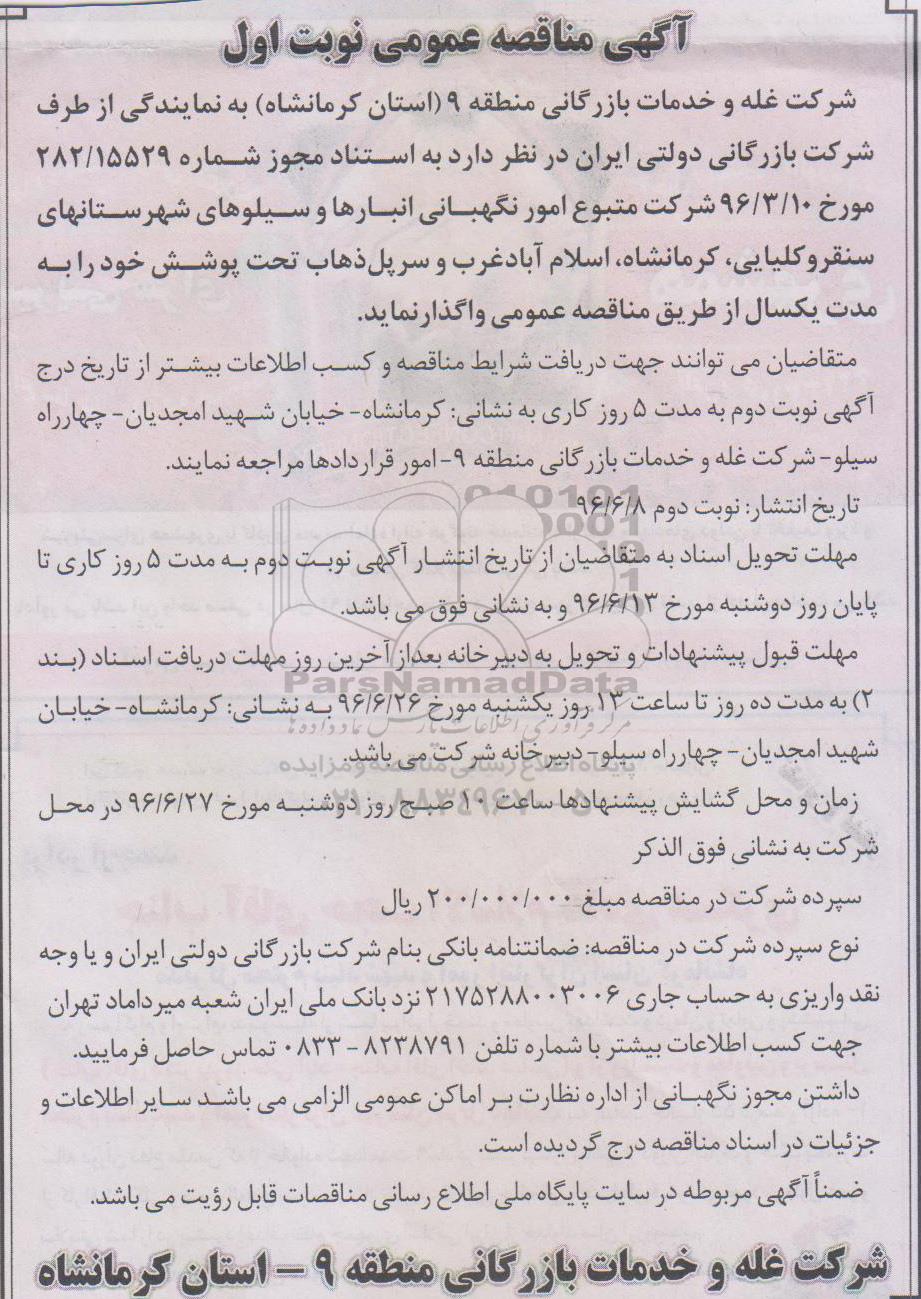 آگهی مناقصه عمومی نوبت اول
شرکت غله و خدمات بازرگانی منطقه ۹ (استان کرمانشاه) به نمایندگی از طرف
شرکت بازرگانی دولتی ایران در نظر دارد به استناد مجوز شماره ۲۸۲/۱۵۵۲۹
مورخ ۹۶/۳/۱۰ شرکت متبوع امور نگهبانی انبارها و سیلوهای شهرستانهای
سنقروکلیایی، کرمانشاه، اسلام آبادغرب و سرپل‌ذهاب تحت پوشش خود را به
مدت یکسال از طریق مناقصه عمومی واگذارنماید.
متقاضیان می توانند جهت دریافت شرایط مناقصه و کسب اطلاعات بیشتر از تاریخ درج
آگهی نوبت دوم به مدت ۵ روز کاری به نشانی: کرمانشاه- خیابان شهید امجدیان- چهارراه
سیلو- شرکت غله و خدمات بازرگانی منطقه ۹- امور قراردادها مراجعه نمایند.
تاریخ انتشار: نوبت دوم ۹۶/۶/۸
مهلت تحویل اسناد به متقاضیان از تاریخ انتشار آگهی نوبت دوم به مدت ۵ روز کاری تا
پایان روز دوشنبه مورخ ۹۶/۶/۱۳ و به نشانی فوق می باشد.
مهلت قبول پیشنهادات و تحویل به دبیرخانه بعداز آخرین روز مهلت دریافت اسناد (بند
۲) به مدت ده روز تا ساعت ۱۳ روز یکشنبه مورخ ۹۶/۶/۲۶ به نشانی: کرمانشاه- خیابان
شهید امجدیان- چهارراه سیلو- دبیرخانه شرکت می باشد.
زمان و محل گشایش پیشنهادها ساعت ۱۰ صبح روز دوشنبه مورخ ۹۶/۶/۲۷ در محل
شرکت به نشانی فوق الذکر
سپرده شرکت در مناقصه مبلغ ۲۰۰/۰۰۰/۰۰۰ ریال
نوع سپرده شرکت در مناقصه: ضمانتنامه بانکی بنام شرکت بازرگانی دولتی ایران و یا وجه
نقد واریزی به حساب جاری ۲۱۷۵۲۸۸۰۰۳۰۰۶ نزد بانک ملی ایران شعبه میرداماد تهران
جهت کسب اطلاعات بیشتر با شماره تلفن ۸۲۳۸۷۹۱ - ۰۸۳۳ تماس حاصل فرمایید.
داشتن مجوز نگهبانی از اداره نظارت بر اماکن عمومی الزامی می باشد سایر اطلاعات و
جزئیات در اسناد مناقصه درج گردیده است.
ضمناً آگهی مربوطه در سایت پایگاه ملی اطلاع رسانی مناقصات قابل رؤیت می باشد.
شرکت غله و خدمات بازرگانی منطقه ۹ - استان کرمانشاه
ParsNamadData